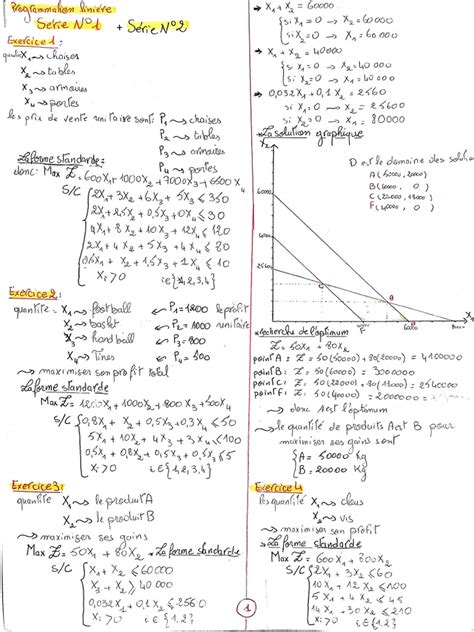 Programmation linière
Série N°1 + Série N°2
Exercice 1:
quantité X₁ → chaises
X₂ → tables
X₃ → armaires
X₄ → portes
les prix de vente unitaire sont: P₁ → chaises
P₂ → tables
P₃ → armaires
P₄ → portes
La forme standarde:
donc: Max Z = 600X₁ + 1000X₂ + 7000X₃ + 6500X₄
S/C
2X₁ + 3X₂ + 6X₃ + 5X₄ ≤ 350
2X₁ + 2,5X₂ + 0,5X₃ + 0X₄ ≤ 30
4X₁ + 8X₂ + 10X₃ + 12X₄ ≤ 120
2X₁ + 4X₂ + 5X₃ + 4X₄ ≤ 80
0,5X₁ + X₂ + 1,5X₃ + 1X₄ ≤ 10
Xi ≥ 0 i ∈ {1,2,3,4}
Exercice 2:
quantité = X₁ → football
X₂ → basket
X₃ → hand ball
X₄ →
P₁ = 1200 le profit
P₂ = 1000 unitaire
P₃ = 800
P₄ = 500
→ maximiser son profit total
La forme standarde
Max Z = 1200X₁ + 1000X₂ + 800X₃ + 500X₄
S/C
0,8X₁ + 0,5X₂ + 0,5X₃ + 0,3X₄ ≤ 50
5X₁ + 10X₂ + 4X₃ + 3X₄ ≤ 100
0,5X₁ + 0,8X₂ + 0,5X₃ + 0,5X₄ ≤ 65
Xi ≥ 0 i ∈ {1,2,3,4}
Exercice 3:
quantité X₁ → le produit A
X₂ → le produit B
→ maximiser ses gains
Max Z = 50X₁ + 80X₂ La forme standarde
S/C
X₁ + X₂ ≤ 60000
X₁ + X₂ ≥ 40000
0,032X₁ + 0,1X₂ ≤ 2560
Xi ≥ 0 i ∈ {1,2}
→ X₁ + X₂ = 60000
si X₁ = 0 → X₂ = 60000
si X₂ = 0 → X₁ = 60000
→ X₁ + X₂ = 40000
si X₁ = 0 → X₂ = 40000
si X₂ = 0 → X₁ = 40000
→ 0,032X₁ + 0,1X₂ = 2560
si X₁ = 0 → X₂ = 25600
si X₂ = 0 → X₁ = 80000
La solution graphique
X₂
D est le domaine des solutions
A(50000, 20000)
B(60000, 0)
C(22000, 18000)
F(40000, 0)
60000
40000
25600
C
A
F
X₁
recherche de l'optimum
Z = 50X₁ + 80X₂
point A: Z = 50(50000) + 80(20000) = 4100000
point B: Z = 50(60000) = 3000000
point C: Z = 50(22000) + 80(18000) = 2540000
point F: Z = 50(40000) = 2000000
→ donc A est l'optimum
→ le quantité de produits A et B pour
maximiser ses gains sont
A = 50000 Kg
B = 20000 Kg
Exercice 4:
Les quantité X₁ → clous
X₂ → vis
→ maximiser son profit
La forme standarde
Max Z = 600X₁ + 800X₂
S/C
2X₁ + 3X₂ ≤ 60
10X₁ + 12X₂ ≤ 100
5X₁ + 4X₂ ≤ 45
14X₁ + 30X₂ ≤ 210
Xi ≥ 0 i ∈ {1,2}
1